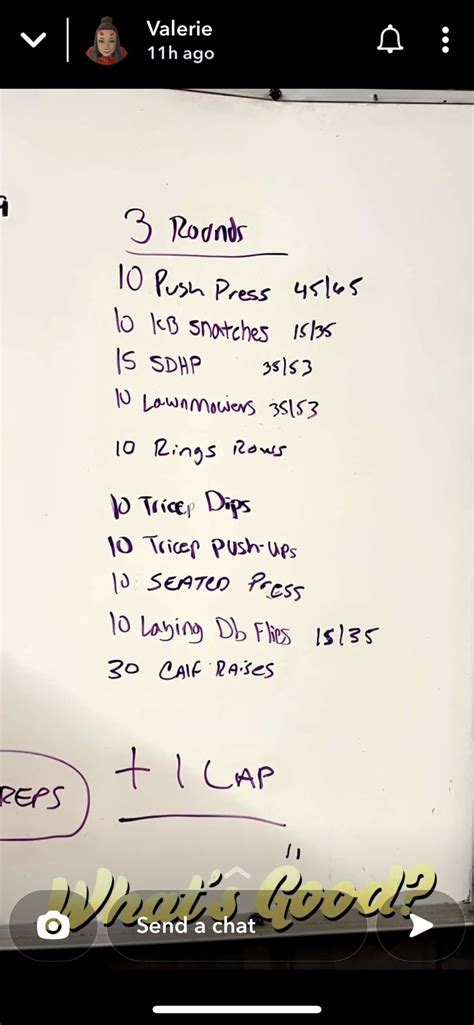 Valerie
11h ago
3 Rounds
10 Push Press 45/65
10 KB Snatches 15/35
15 SDHP 35/53
10 Lawnmowers 35/53
10 Rings Rows
10 Tricep Dips
10 Tricep Push-ups
10 SEATED Press
10 Laying Db Flies 15/35
30 CAlf RAises
+ 1 LAP
REPS
What's Good?
Send a chat